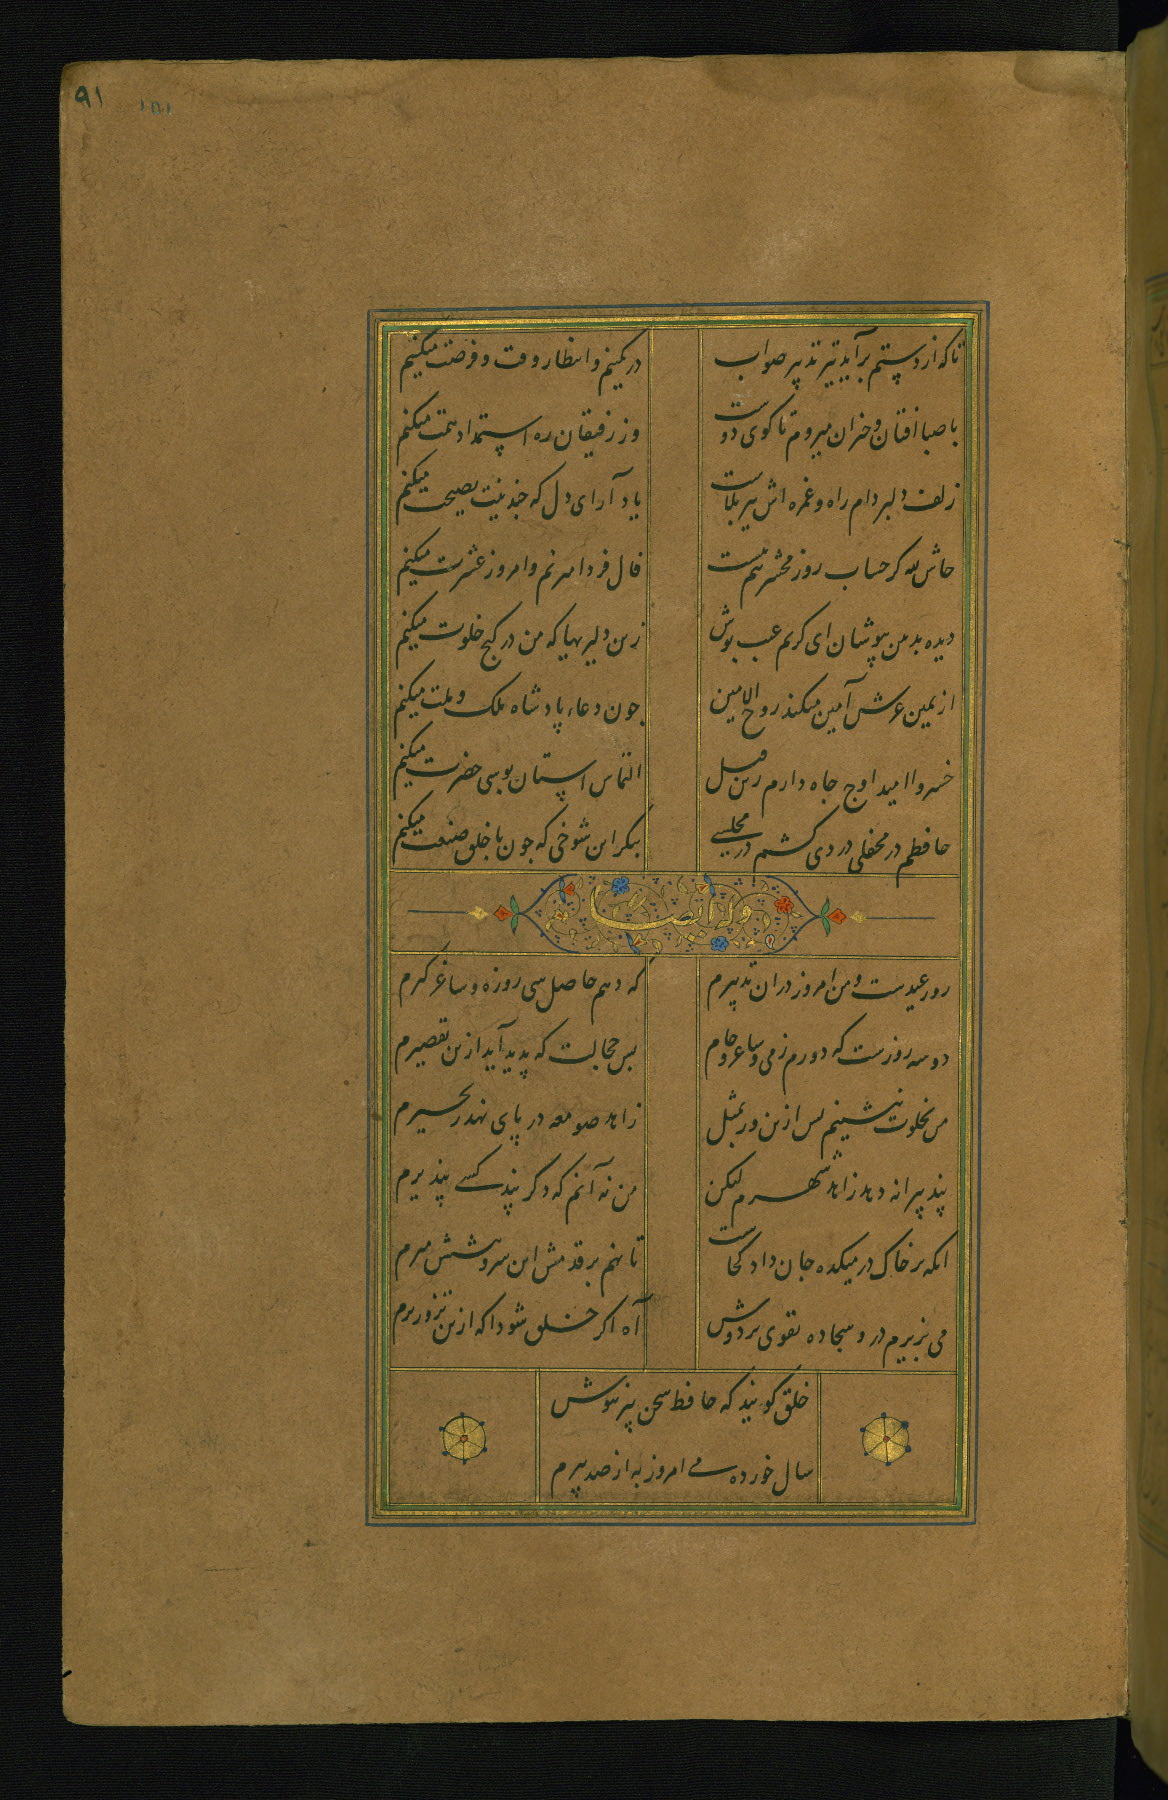 ۹۱ ۱۵۱
تا که از دستم برآید تیر تدبیر صواب
در کمینم و انتظار وقت و فرصت میکنم
با صبا افتان و خیزان میروم تا کوی دوست
وز رفیقان ره استمداد همت میکنم
زلف دلبر دام راه و غمزه اش تیر بلاست
یاد آر ای دل که چندینت نصیحت میکنم
حاش لله کز حساب روز محشر بیم نیست
فال فردا میزنم و امروز عشرت میکنم
دیده بدبین بپوشان ای کریم عیب پوش
زین دلیریها که من در کنج خلوت میکنم
از یمین عرش آمین میکند روح الامین
چون دعاء پادشاه ملک و ملت میکنم
خسروا امید اوج جاه دارم زین قبل
التماس استان بوسی حضرت میکنم
حافظم در محفلی دردی کشم در مجلسی
بنگر این شوخی که چون با خلق صنعت میکنم
وله ایضا
روز عیدست و من امروز دران تدبیرم
که دهم حاصل سی روزه و ساغر گیرم
دو سه روزست که دورم ز می و ساغر و جام
بس خجالت که پدید آید ازین تقصیرم
من بخلوت ننشینم پس ازین ور بمثل
زاهد صومعه در پای نهد زنجیرم
پند پیرانه دهد زاهد شهرم لیکن
من نه آنم که دگر پند کسی بپذیرم
انکه بر خاک در میکده جان داد کجاست
تا نهم بر قدمش این سر و پیشش میرم
می بزیرم در و سجاده تقوی بر دوش
آه اگر خلق شود اگه ازین تزویرم
خلق گویند که حافظ سخن پیر نیوش
سال خورده می امروز به از صد پیرم